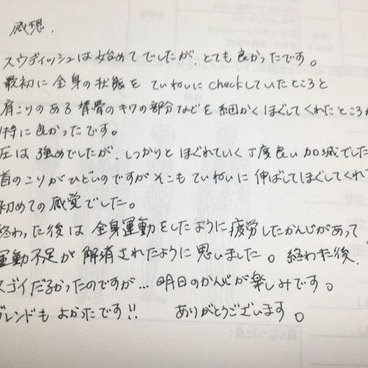 感想.
スウディッシュは始めてでしたが、とても良かったです。
最初に全身の状態をていねいにcheckしていたところと
肩こりのある背骨のキワの部分などを細かくほぐしてくれたところが
特に良かったです。
圧は強めでしたが、しっかりとほぐれていく丁度良い加減でした
首のこりがひどいのですがそこもていねいに伸ばしてほぐしてくれて
初めての感覚でした。
終わった後は全身運動をしたように疲労したかんじがあって
運動不足が解消されたように思いました。終わった後、
スゴイだるかったのですが…明日のかんじが楽しみです。
ブレンドもよかったです!! ありがとうございます。